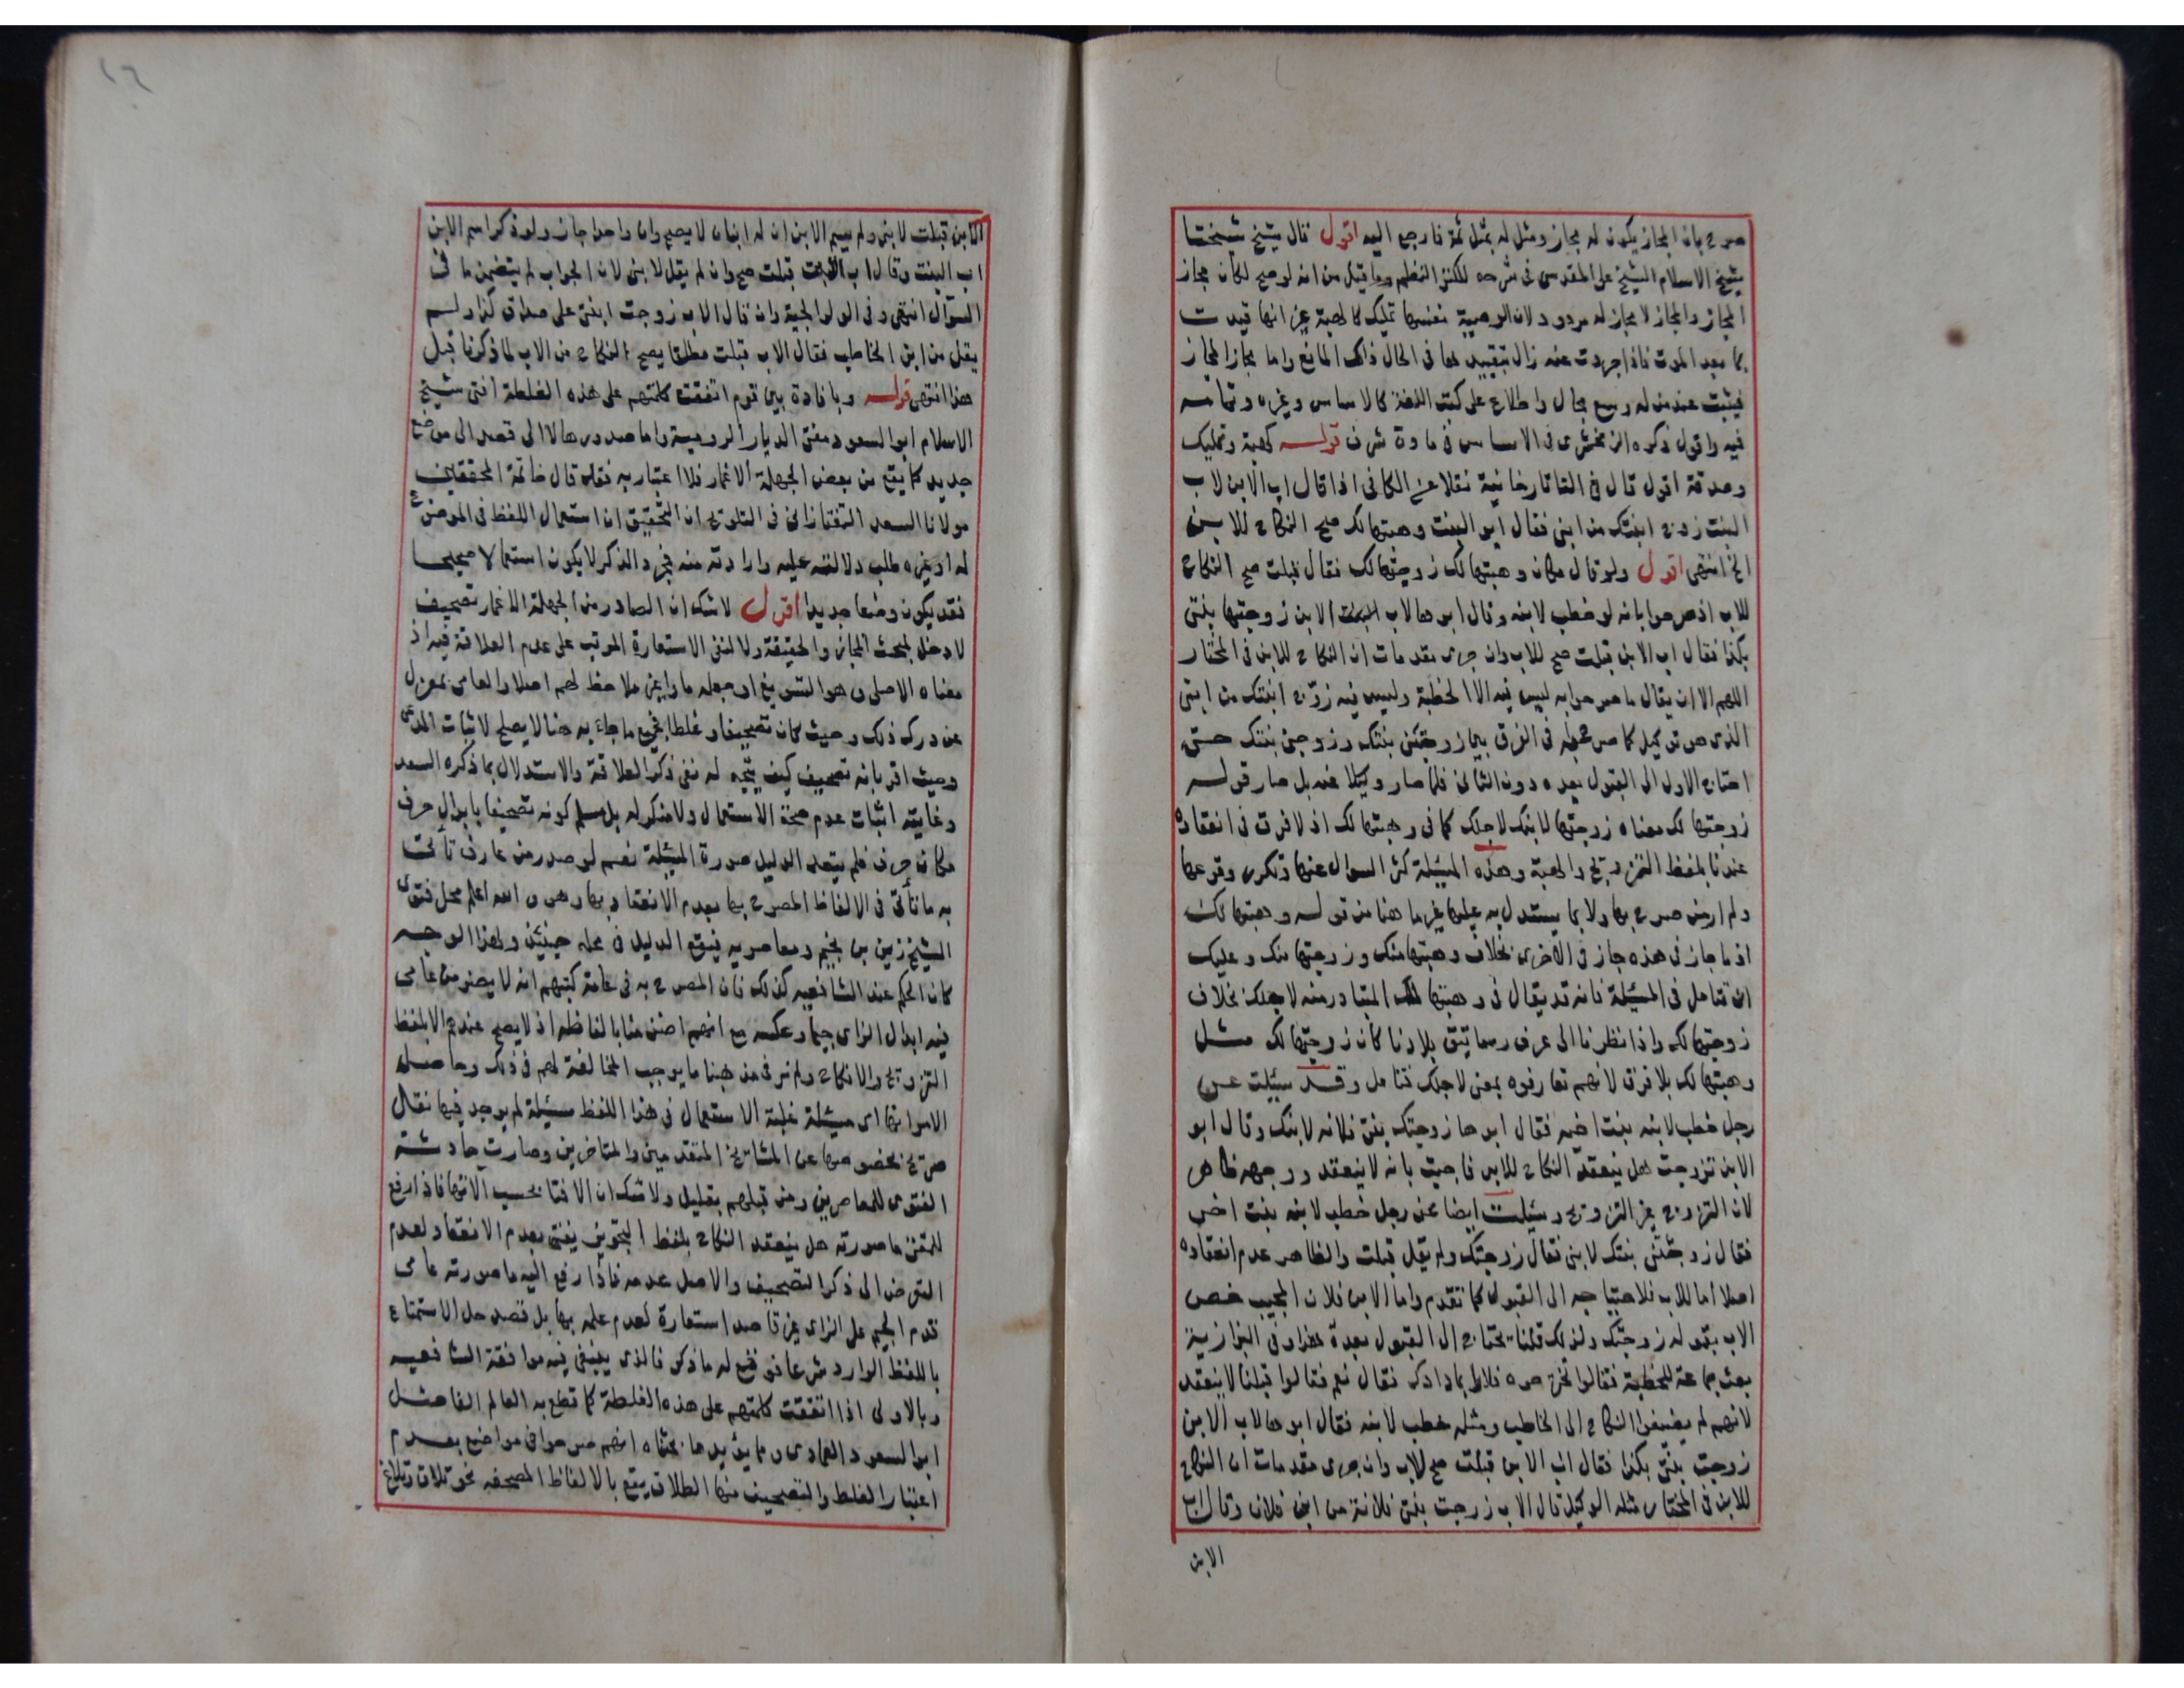 صرح بان المجاز يكون له مجاز ومثل له بمثل ثمة فارجع اليه اقول قال شيخ شيخنا
شيخ الاسلام الشيخ على المقدسى فى شرحه للكنز المنظم وما قيل من انه لو صح لكان مجاز
المجاز والمجاز لا مجاز له مردود لان الوصية نفسها تمليك كالهبة غير انها قيدت
بما بعد الموت فاذا جردت عنه زال بتقييدها فى الحال ذلك المانع واما مجاز المجاز
فيثبت عند من له وسع مجال واطلاع على كتب اللغة كالاساس وغيره وتمامه
فيه واقول ذكره الزمخشرى فى الاساس فى مادة شرف قوله كهبة وتمليك
وصدقة اقول قال فى التاتارخانية نقلا عن الكافى اذا قال اب الابن لاب
البنت زوج ابنتك من ابنى فقال ابو البنت وهبتها لك صح النكاح للابن
الخ انتهى اقول ولو قال مكان وهبتها لك زوجتها لك فقال قبلت صح النكاح
للاب اذ صرحوا بانه لو خطب لابنه وقال ابوها لاب الابن زوجتها بنتى
بكذا فقال اب الابن قبلت صح للاب وان جرى مقدمات ان النكاح للابن فى المختار
اللهم الا ان يقال ما صرحوا به ليس فيه الا الخطبة وليس فيه زوج ابنتك من ابنى
الذى هو توكيل كما صرح به فى الفرق بين زوجتنى بنتك وزوجنى بنتك حتى
احتاج الاول الى القبول بعده دون الثانى فلما صار وكيلا عنه بل صار قوله
زوجتها لك معناه زوجتها لابنك لاجلك كما فى وهبتها لك اذ لا فرق فى انعقاده
عندنا بلفظ التزويج والهبة وهذه المسئلة كثر السوال عنها وتكرر وقوعها
ولم ار من صرح بها ولا بما يستدل به عليها غير ما هنا من قوله وهبتها لك
اذ ما جاز فى هذه جاز فى الاخرى بخلاف وهبتها منك وزوجتها منك وعليك
ان تتامل فى المسئلة فانه قد يقال فى وهبتها لك المتبادر منه لاجلك بخلاف
زوجتها لك واذا نظرنا الى عرف رساتيق بلادنا كان زوجتها لك مثل
وهبتها لك بلا فرق لانهم تعارفوه بمعنى لاجلك فتامل وقد سئلت عن
رجل خطب لابنه بنت اخيه فقال ابوها زوجتك بنتى فلانه لابنك وقال ابو
الابن تزوجت هل ينعقد النكاح للابن فاجبت بانه لا ينعقد ووجهه ظاهر
لان التزوج غير التزويج وسئلت ايضا عن رجل خطب لابنه بنت اخر
فقال زوجتنى بنتك لابنى فقال زوجتك ولم يقل قبلت والظاهر عدم انعقاده
اصلا اما للاب فلاحتياجه الى القبول كما تقدم واما الابن فلان المجيب خص
الاب بقوله زوجتك ولذلك قلنا يحتاج الى القبول بعده هذا وفى البزازية
بعث جماعة للخطبة فقالوا فلانا بما ذكر فقال نعم فقالوا قبلنا لا ينعقد
لانهم لم يضيفوا النكاح الى الخاطب ومثله خطب لابنه فقال ابوها لاب الابن
زوجت بنتى بكذا فقال اب الابن قبلت صح للاب وان جرى مقدمات ان النكاح
للابن فى المختار مثله الوكيل قال الاب زوجت بنتى فلانة من ابن فلان وقال اب
الابن
١٦
الابن قبلت لابنى ولم يسم الابن ان له ابنان لا يصح وان واحدا جاز ولو ذكر اسم الابن
اب البنت وقال اب قبلت صح وان لم يقل لابنى لان الجواب لم يتضمن ما فى
السوال انتهى وفى الولوالجية وان قال الاب زوجت ابنتى على صداق كذا ولم
يقل من ابن الخاطب فقال الاب قبلت مطلقا يصح النكاح من الاب لما ذكرنا قبل
هذا انتهى قوله وبافادة بين قوم اتفقت كلمتهم على هذه الغلطة افتى شيخ
الاسلام ابو السعود مفتى الديار الرومية واما صدورها لا الى قصد الى وضع
جديد كما يقع من بعض الجهلة الاغمار فلا اعتبار به فقد قال خاتمة المحققين
مولانا السعد التفتازانى فى التلويح ان التحقيق ان استعمال اللفظ فى الموضوع
له او غيره طلب دلالته عليه وارادته منه فمجرد الذكر لا يكون استعمالا صحيحا
فقد يكون وضعا جديدا اقول لا شك ان الصادر من الجهلة الاغمار تصحيف
لا دخل لبحث المجاز والحقيقة ولا لنفى الاستعارة المرتب على عدم العلاقة فيه اذ
معناه الاصلى وهو التسويغ او جعله مارا غير ملاحظ لهم اصلا والعامى بمعزل
عن درك ذلك وحيث كان تصحيفا وغلطا فجميع ما جاء به هنا لا يصلح لاثبات المدعى
وحيث اقر بانه تصحيف كيف يتجه له نفى ذكر العلاقة والاستدلال بما ذكره السعد
وغايته اثبات عدم صحة الاستعمال ولا منكر له بل مسلم كونه تصحيفا بابدال حرف
مكان حرف فلم يتعد الدليل صورة المسئلة نعم لو صدر من عارف تاتى
به ما تاتى فى الالفاظ المصرح بها بعدم الانعقاد بها وهو والله اعلم محل فتوى
الشيخ زين بن نجيم ومعاصريه فيقع الدليل فى محله حينئذ ولهذا الوجه
كان الحكم عند الشافعيه كذلك فان المصرح به فى عامة كتبهم انه لا يضر من عامى
فيه ابدال الزاى جيما وعكسه مع انهم اضيق منا بالفاظه اذ لا يصح عندهم الا بلفظ
التزويج والانكاح ولم نر فى مذهبنا ما يوجب المخالفة لهم فى ذلك وحاصل
الامر انها اى مسئلة غلبة الاستعمال فى هذا اللفظ مسئلة لم يوجد فيها نقل
صريح بخصوصها عن المشايخ المتقدمين والمتاخرين وصارت حادثة
الفتوى للمعاصرين ومن قبلهم بقليل ولا شك ان الافتا بحسب الانها فاذا رفع
للمفتى ما صورته هل ينعقد النكاح بلفظ التجويز يفتى بعدم الانعقاد لعدم
التعرض الى ذكر التصحيف والاصل عدمه فاذا رفع اليه ما صورته عامى
قدم الجيم على الزاى غير قاصد استعارة لعدم علمه بها بل قصد حل الاستمتاع
باللفظ الوارد شرعا فوقع له ما ذكر فالذى ينبغى فيه موافقة الشافعيه
وبالاولى اذا اتفقت كلمتهم على هذه الغلطة كما قطع به العالم الفاضل
ابو السعود العمادى ومما يؤيد ما بحثناه انهم صرحوا فى مواضع بعدم
اعتبار الغلط والتصحيف منها الطلاق يقع بالالفاظ المصحفه نحو تلاق وتلاغ